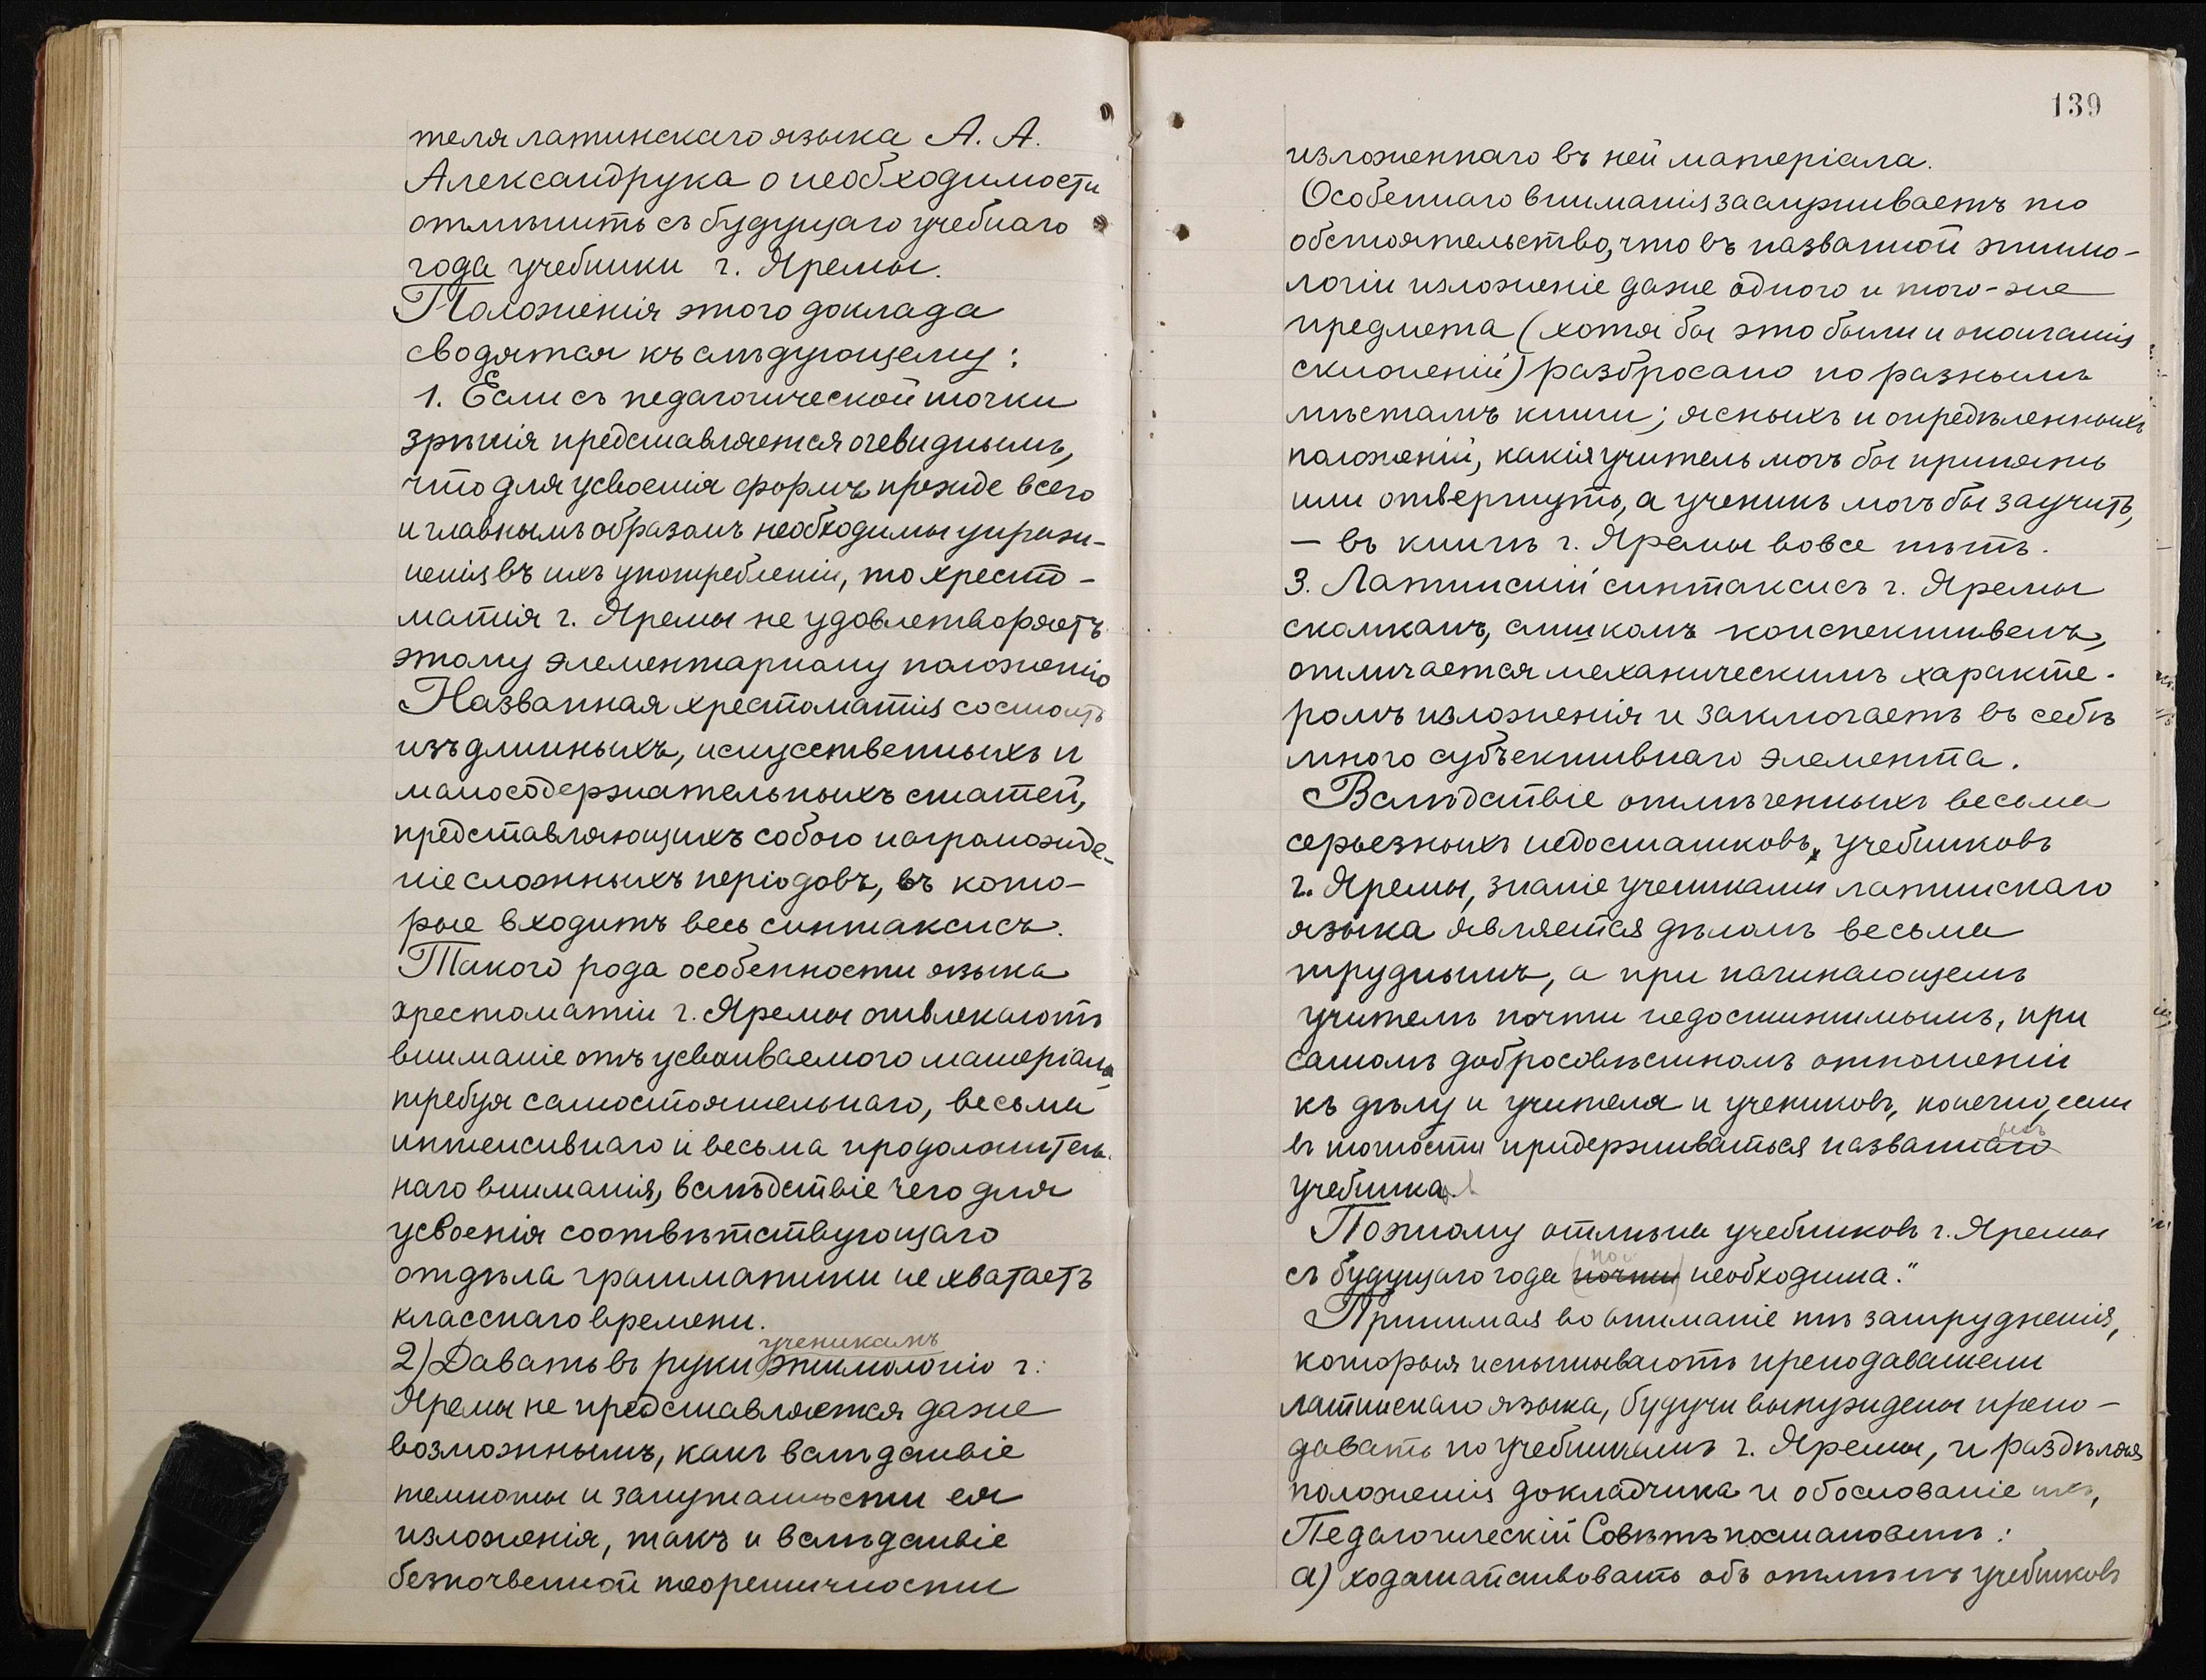 теля латинскаго языка А. А.
Александрука о необходимости
отмѣнить съ будущаго учебнаго
года учебники г. Яремы.
Положенія этого доклада
сводятся къ слѣдующему:
1. Если съ педагогической точки
зрѣнія представляется очевиднымъ,
что для усвоенія формъ прежде всего
и главнымъ образомъ необходимы упраж-
ненія въ ихъ употребленіи, то хресто-
матія г. Яремы не удовлетворяетъ
этому элементарному положенію
Названная хрестоматія состоитъ
изъ длинныхъ, искусственныхъ и
малосодержательныхъ статей,
представляющихъ собою нагроможде-
ніе сложныхъ періодовъ, въ кото-
рые входитъ весь синтаксисъ.
Такого рода особенности языка
хрестоматіи г. Яремы отвлекаютъ
вниманіе отъ усваиваемого матеріала,
требуя самостоятельнаго, весьма
интенсивнаго и весьма продолжитель-
наго вниманія, вслѣдствіе чего для
усвоенія соотвѣтствующаго
отдѣла грамматики не хватаетъ
класснаго времени.
ученикамъ
2) Давать въ руки этимологію г.
Яремы не представляется даже
возможнымъ, какъ вслѣдствіе
темноты и запутанности ея
изложенія, такъ и вслѣдствіе
безпочвенной теоретичности
139
изложеннаго въ ней матеріала.
Особеннаго вниманія заслуживаетъ то
обстоятельство, что въ названной этимо-
логіи изложеніе даже одного и того-же
предмета (хотя бы это были и окончанія
склоненій) разбросано по разнымъ
мѣстамъ книги; ясныхъ и опредѣленныхъ
положеній, какія учитель могъ бы принять
или отвергнуть, а ученикъ могъ бы заучить,
— въ книгѣ г. Яремы вовсе нѣтъ.
3. Латинскій синтаксисъ г. Яремы
скомканъ, слишкомъ конспективенъ,
отличается механическимъ характе-
ромъ изложенія и заключаетъ въ себѣ
много субъективнаго элемента.
Вслѣдствіе отмѣченныхъ весьма
серьезныхъ недостатковъ, учебниковъ
г. Яремы, знаніе учениками латинскаго
языка является дѣломъ весьма
труднымъ, а при начинающемъ
учителѣ почти недостижимымъ, при
самомъ добросовѣстномъ отношеніи
къ дѣлу и учителя и учениковъ, конечно, если
въ точности придерживаться названнаго
учебника.
Поэтому отмѣна учебниковъ г. Яремы
съ будущаго года почти необходима."
Принимая во вниманіе тѣ затрудненія,
которыя испытываютъ преподаватели
латинскаго языка, будучи вынуждены препо-
давать по учебникамъ г. Яремы, и раздѣляя
положенія докладчика и обоснованіе ихъ,
Педагогическій Совѣтъ постановилъ:
а) ходатайствовать объ отмѣнѣ учебниковъ